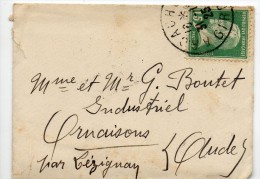 Mme et Mr G. Boutet
Industriel
Ornaisons
par Lézignan (Aude)